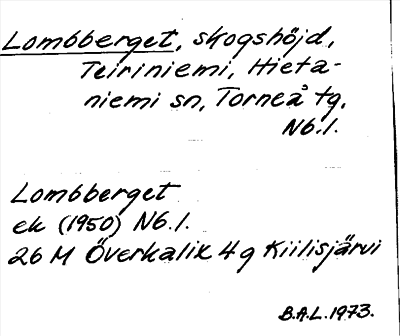 Lombberget, skogshöjd,
Teiriniemi, Hieta-
niemi sn, Torneå tg.
Nb.l.
Lombberget
ek (1950) Nb.l.
26 M Överkalix 4 g Kiilisjärvi
B.A.L. 1973.